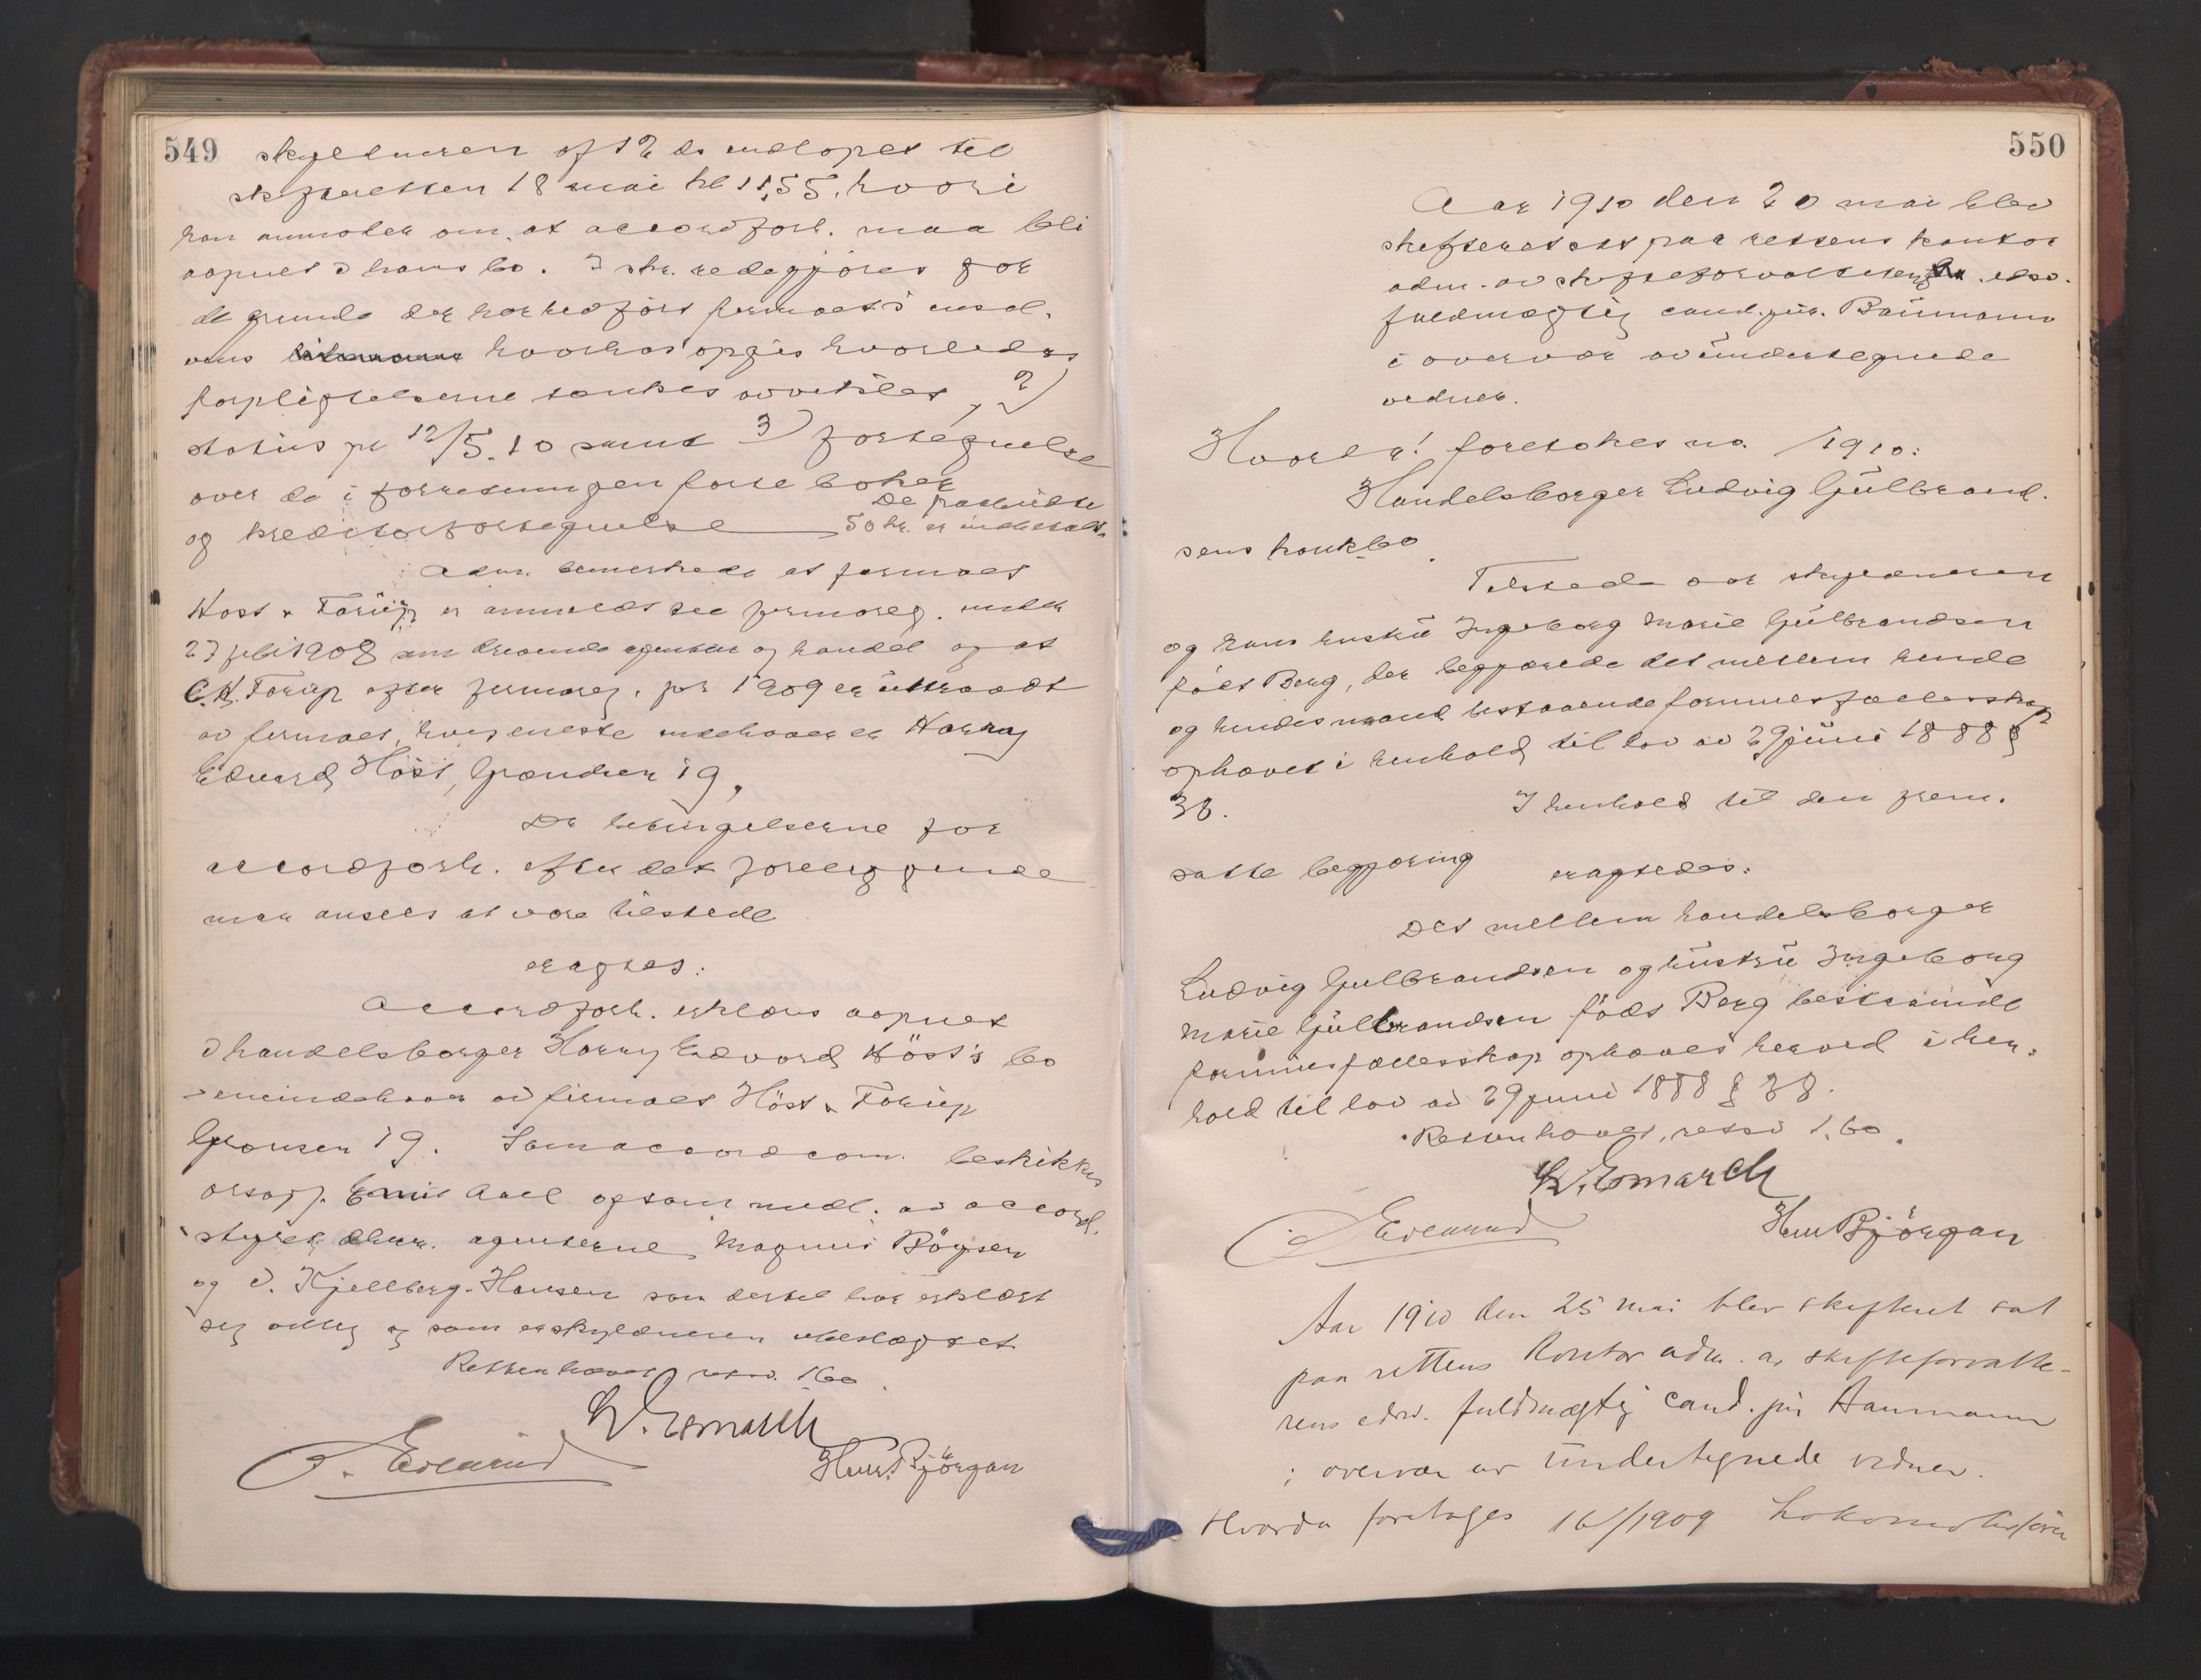 549
skyldneren af 12 ds indlopet til
skifteretten 18 mai kl 11,55, hvori
han anmoder om at accordforh. maa bli
aapnet i hans bo. I skr. redegjøres for
de grunde der har medført firmaets insol-
vens hvorhos opgis hvorledes
forpligtelserne tænkes avviklet, 2)
status pr 12/5.10 samt 3) fortegnelse
over de i forretningen førte bøker
og kreditorfortegnelse De
50 kr. er indbetalt.
Adm. bemerkede at firmaet
Høst & Torüp er anmeldt til firmareg. under
27 1908 som drivende agentur og handel og at
C.H. Torup efter firmareg. for 1909 er uttraadt
av firmaet, hvis eneste indehaver er Harry
Edvard Höst, Grændsen 19,
Da betingelserne for
accordforh. efter det foreliggende
maa ansees at være tilstede
eragtes:
Accordforh. erklæres aapnet
i handelsborger Harry Edvard Höst's bo
eneindehaver av firmaet Höst & Torüp
Grænsen 19. Som accordcom. beskikkes
orsagf. Emil Aall og som medl. av accord-
styret agenterne Magnus Böysen
og O. Kjellberg-Hansen som dertil har erklært
sig villig og som er skyldneren ubeslægtet
Retten hævet, retsv. 1.60.
W. Esmarch
Edlund
Herm. Björgan
550
Aar 1910 den 20 mai blev
skifteret sat paa rettens kontor
adm. av skifteforvalteren edsv.
fuldmægtig cand. jur. Baumann
i overvær av undertegnede
vidner.
Hvorda! foretokes no. /1910:
Handelsborger Ludvig Gülbrand-
sens konkbo.
Tilstede var skyldneren
og hans hustrü Ingeborg Marie Gülbrandsen
født Berg, der begjærede det mellem hende
og hendes mand bestaaende formuesfællesskap
ophævet i henhold til lov av 29 juni 1888 §
38. I henhold til den frem-
satte begjæring eragtedes:
Det mellem handelsborger
Ludvig Gulbrandsen og hüstrü Ingeborg
Marie Gülbrandsen föds Berg bestaaende
formuesfællesskap ophæves herved i hen-
hold til lov av 29 juni 1888 § 38.
Retten hævet, retsv 1.60.
W. Esmarch
Edlund
Herm Björgan
Aar 1910 den 25 mai blev skifteret sat
paa rettens kontor adm. av skifteforvalte-
rens edsv. fuldmægtig cand. jur Baumann
i overvær av undertegnede vidner.
Hvorda foretages 16/1909 Lokomotivfører